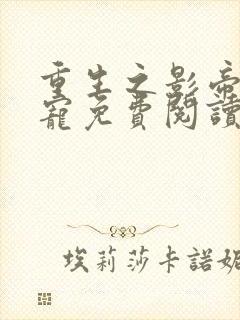 重生之影帝
寵免費閱讀
埃莉莎卡諾妮